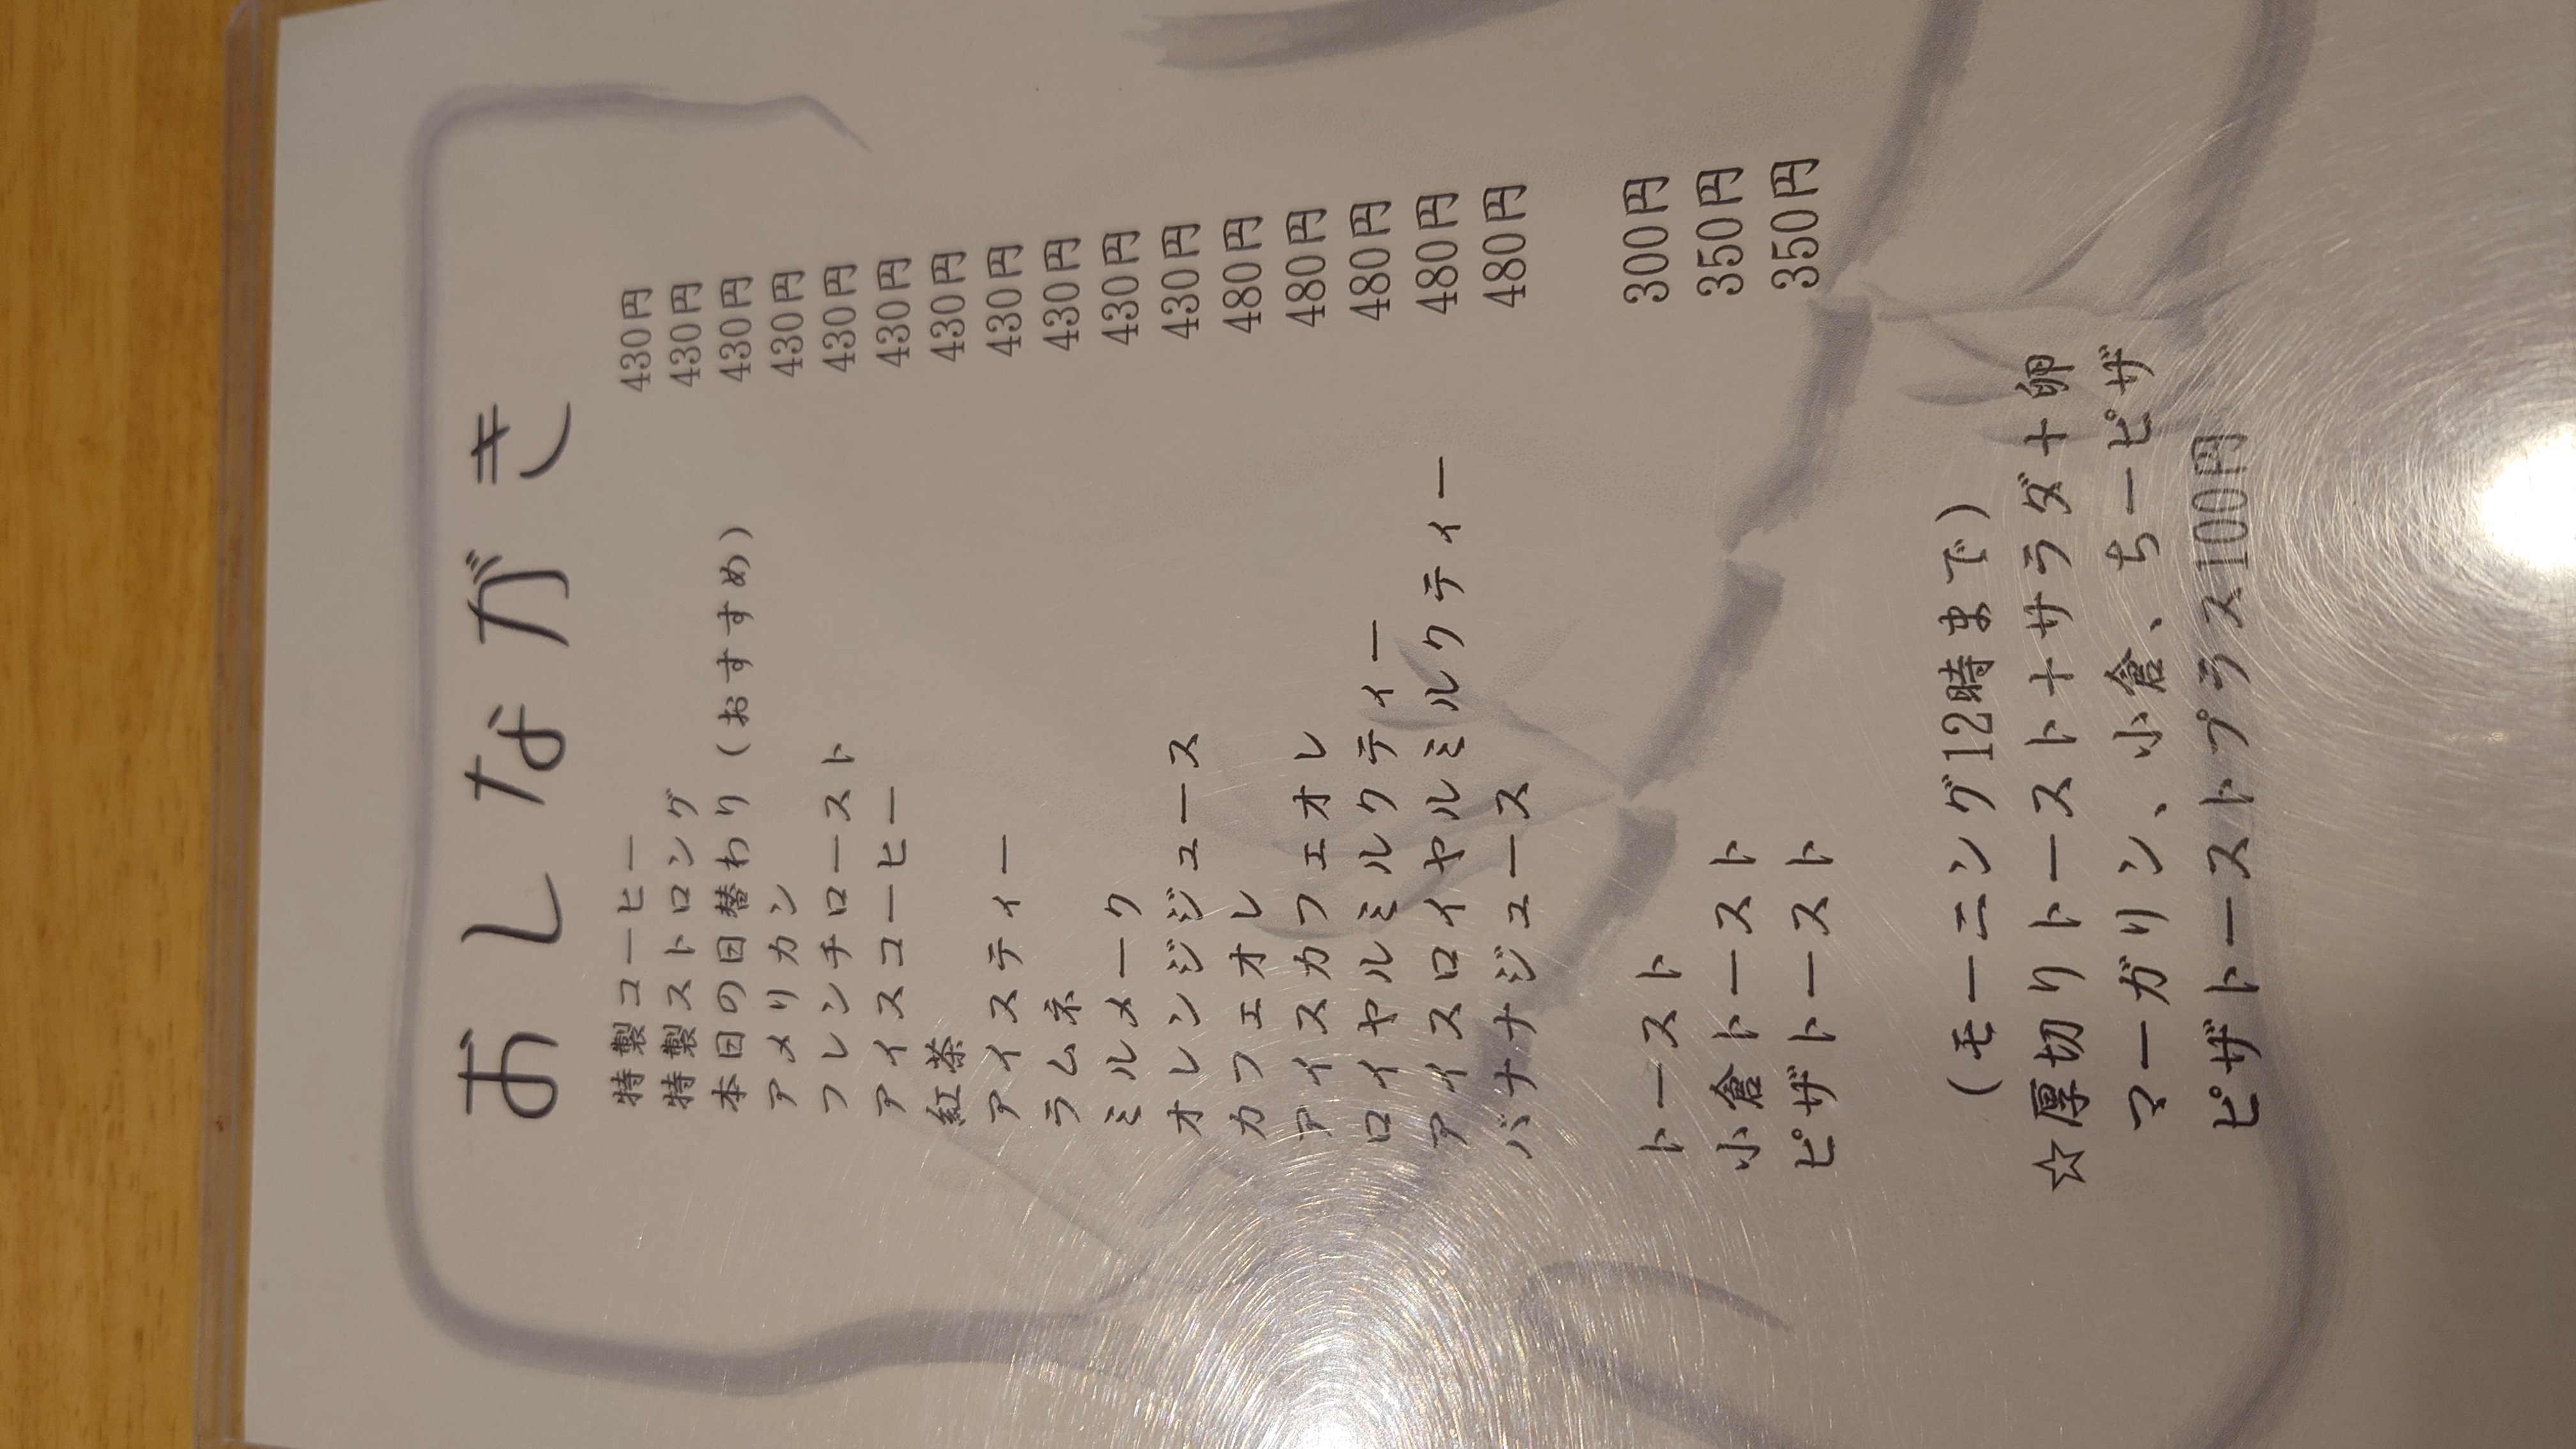 おしながき
特製コーヒー 430円
特製ストロング 430円
本日の日替わり（おすすめ） 430円
アメリカン 430円
フレンチロースト 430円
アイスコーヒー 430円
紅茶 430円
アイスティー 430円
ラムネ 430円
ミルメーク 430円
オレンジジュース 430円
カフェオレ 480円
アイスカフェオレ 480円
ロイヤルミルクティー 480円
アイスロイヤルミルクティー 480円
バナナジュース 480円
トースト 300円
小倉トースト 350円
ピザトースト 350円
（モーニング12時まで）
☆厚切りトースト＋サラダ＋卵
マーガリン、小倉、ちーピザ
ピザトーストプラス100円